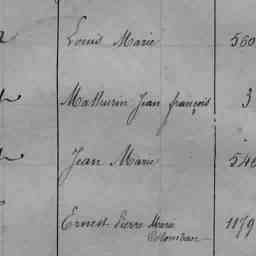 Louis Marie 560
Mathurin Jean françois 3
Jean Marie 546
Ernest Pierre Marie 1179
Colomban